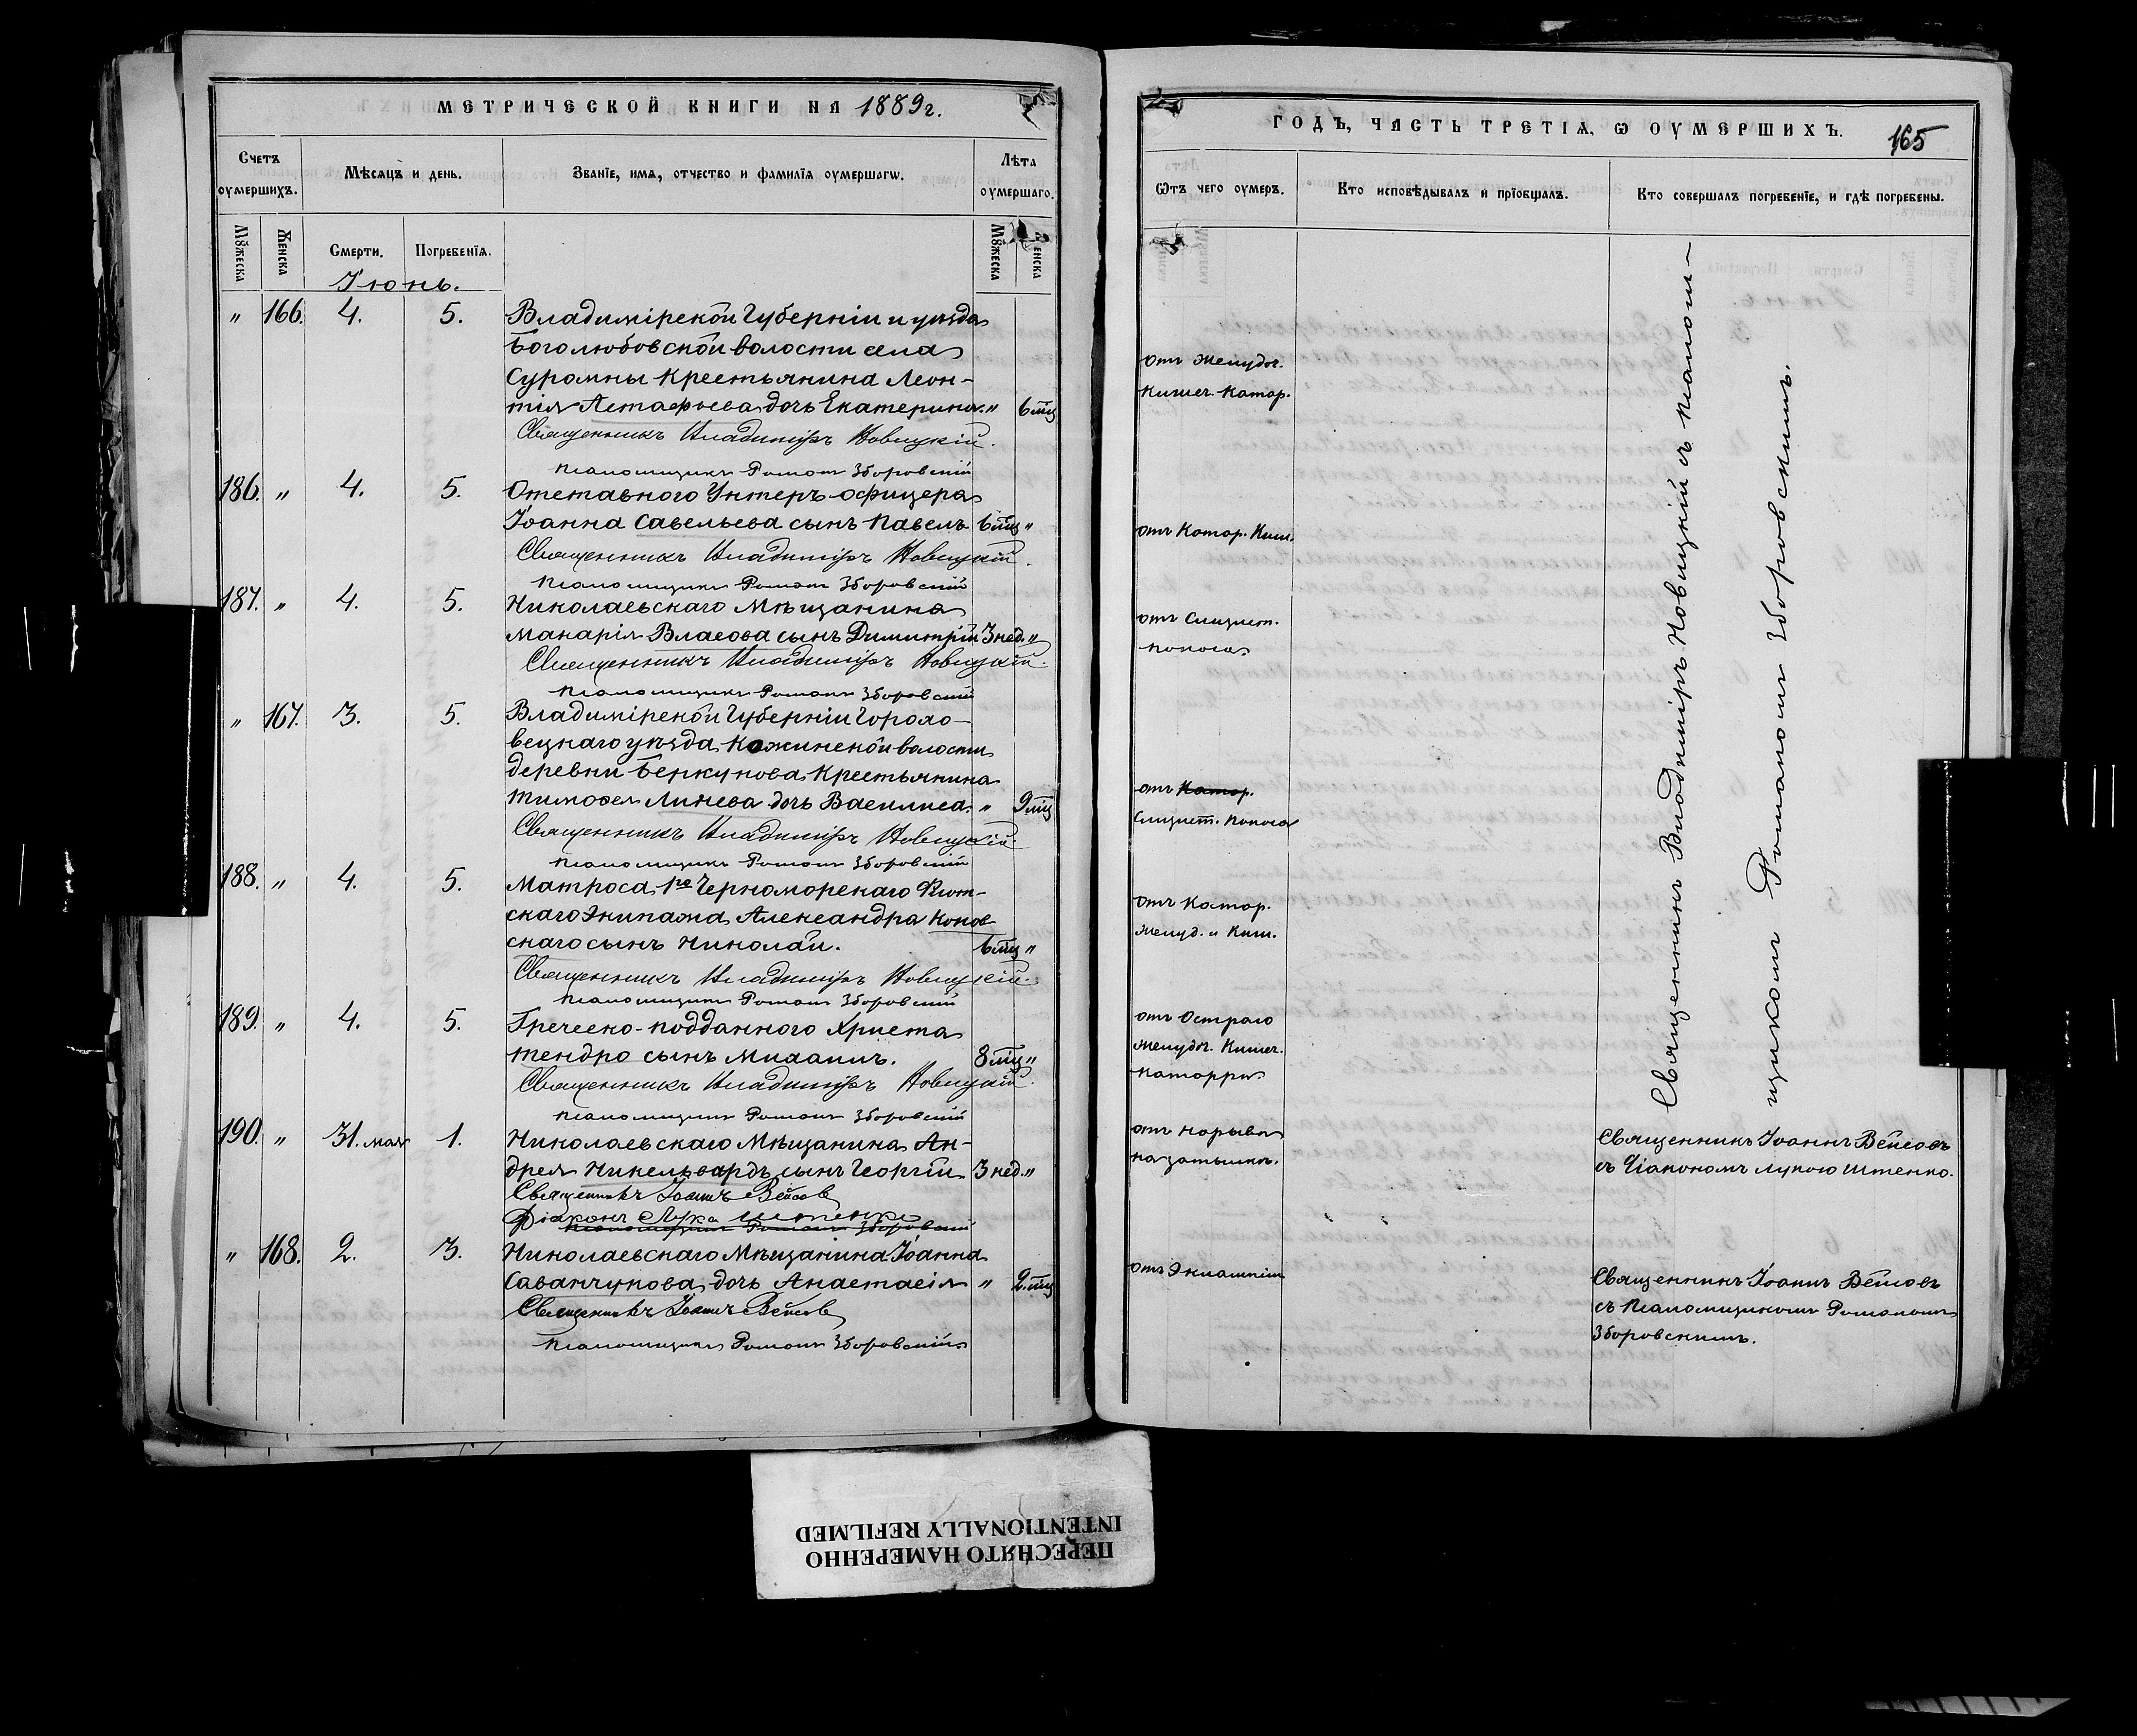 МЕТРИЧЕСКОЙ КНИГИ НА 1889 г.
Счетъ оумершихъ.
Мѣсяцъ и день.
Званіе, имя, отчество и фамилія оумершагѡ.
Лѣта оумершаго.
Мꙋжеска
Женска
Смерти.
Погребенія.
Мꙋжеска
Женска
Іюнь.
" 166. 4. 5. Владимірской Губерніи и уѣзда
Боголюбовской волости села
Суромны Крестьянина Леон-
тія Астафьева дочь Екатерина. " 6 мц
Священникъ Владиміръ Новицкій.
Псаломщикъ Романъ Зборовскій
186. " 4. 5. Отставного Унтеръ-офицера
Іоанна Савельева сынъ Павелъ 6 мц "
Священникъ Владиміръ Новицкій.
Псаломщикъ Романъ Зборовскій
187. " 4. 5. Николаевскаго Мѣщанина
Макарія Власова сынъ Димитрій 3 нед. "
Священникъ Владиміръ Новицкій.
Псаломщикъ Романъ Зборовскій
" 167. 3. 5. Владимірской Губерніи Горохо-
вецкаго уѣзда Кожинской волости
деревни Беркунова Крестьянина
Тимофея Линева дочь Василиса. " 9 мц
Священникъ Владиміръ Новицкій.
Псаломщикъ Романъ Зборовскій
188. " 4. 5. Матроса 1го Черноморскаго Флот-
скаго Экипажа Александра Конов-
скаго сынъ Николай. 6 мц "
Священникъ Владиміръ Новицкій.
Псаломщикъ Романъ Зборовскій
189. " 4. 5. Греческо-подданного Христа
Тендро сынъ Михаилъ. 8 мц "
Священникъ Владиміръ Новицкій.
Псаломщикъ Романъ Зборовскій
190. " 31. мая 1. Николаевскаго Мѣщанина Ан-
дрея Никельвардъ сынъ Георгій 3 нед. "
Священникъ Іоаннъ Вейсовъ
Діаконъ Лука Штенко
Псаломщикъ Романъ Зборовскій
" 168. 2. 3. Николаевскаго Мѣщанина Іоанна
Саванчукова дочь Анастасія " 2 мц
Священникъ Іоаннъ Вейсовъ
Псаломщикъ Романъ Зборовскій
ГОДЪ, ЧАСТЬ ТРЕТІЯ, Ѡ ОУМЕРШИХЪ. 165
Ѿтъ чего оумеръ.
Кто исповѣдывалъ и пріобщалъ.
Кто совершалъ погребеніе, и гдѣ погребены.
отъ Желудоч.
Кишеч. Катар.
отъ Катар. Киш.
отъ Слизист.
поноса
отъ Катар.
Слизист. Поноса
отъ Катар.
Желуд. и Киш.
отъ Остраго
Желудоч. Кишеч.
Катарра
отъ нарыва
на затылкѣ.
отъ Эклампсіи
Священникъ Владиміръ Новицкій съ псалом-
щикомъ Романомъ Зборовскимъ.
Священникъ Іоаннъ Вейсовъ
съ Діакономъ Лукою Штенко.
Священникъ Іоаннъ Вейсовъ
съ Псаломщикомъ Романомъ
Зборовскимъ.
ПЕРЕСНЯТО НАМЕРЕННО
INTENTIONALLY REFILMED